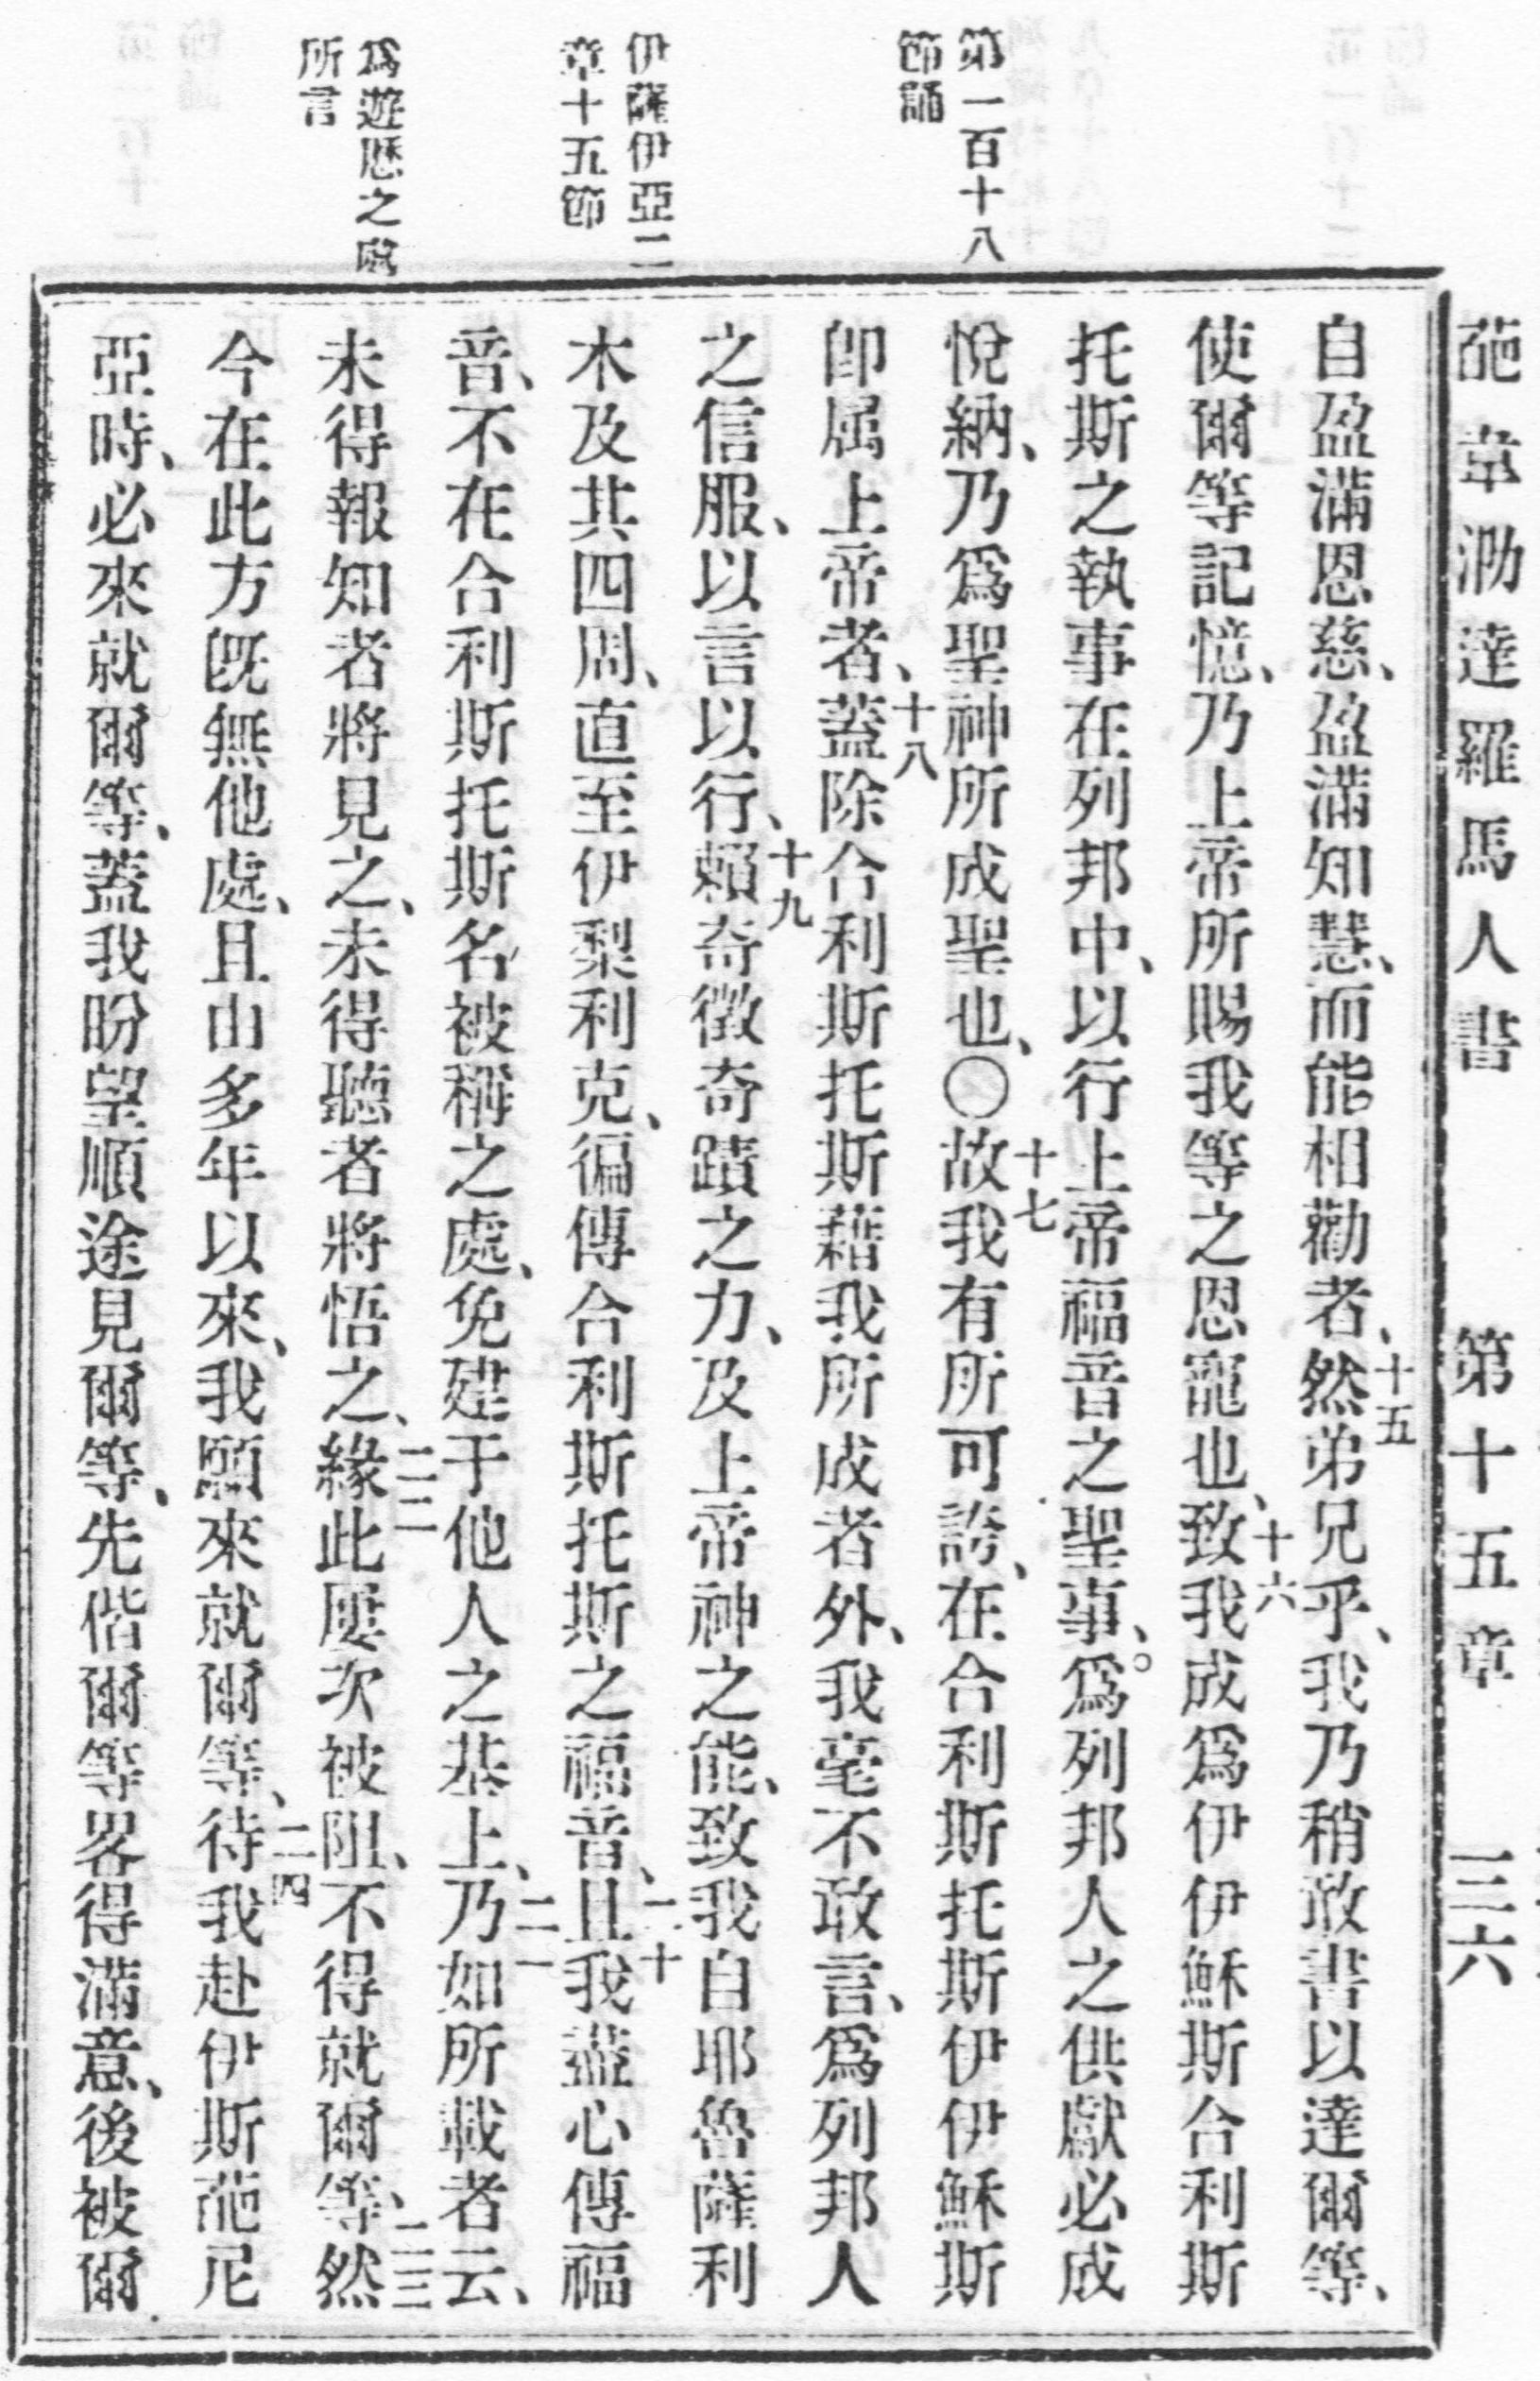 葩韋泐達羅馬人書 第十五章 三六
第一百十八
節誦
伊薩伊亞二
章十五節
爲遊歷之處
所言
自盈滿恩慈、盈滿知慧、而能相勸者、十五然弟兄乎、我乃稍敢書以達爾等、
使爾等記憶、乃上帝所賜我等之恩寵也、十六致我成爲伊伊穌斯合利斯
托斯之執事在列邦中、以行上帝福音之聖事、爲列邦人之供獻必成
悅納、乃爲聖神所成聖也、〇十七故我有所可誇、在合利斯托斯伊伊穌斯
卽屬上帝者、十八蓋除合利斯托斯藉我所成者外、我毫不敢言、爲列邦人
之信服、以言以行、十九賴奇徵奇蹟之力、及上帝神之能、致我自耶魯薩利
木及其四周、直至伊梨利克、徧傳合利斯托斯之福音、二十且我盡心傳福
音、不在合利斯托斯名被稱之處、免建于他人之基上、二一乃如所載者云、
未得報知者將見之、未得聽者將悟之、二二緣此屢次被阻、不得就爾等、二三然
今在此方旣無他處、且由多年以來、我願來就爾等、二四待我赴伊斯葩尼
亞時、必來就爾等、蓋我盼望順途見爾等、先偕爾等畧得滿意、後被爾